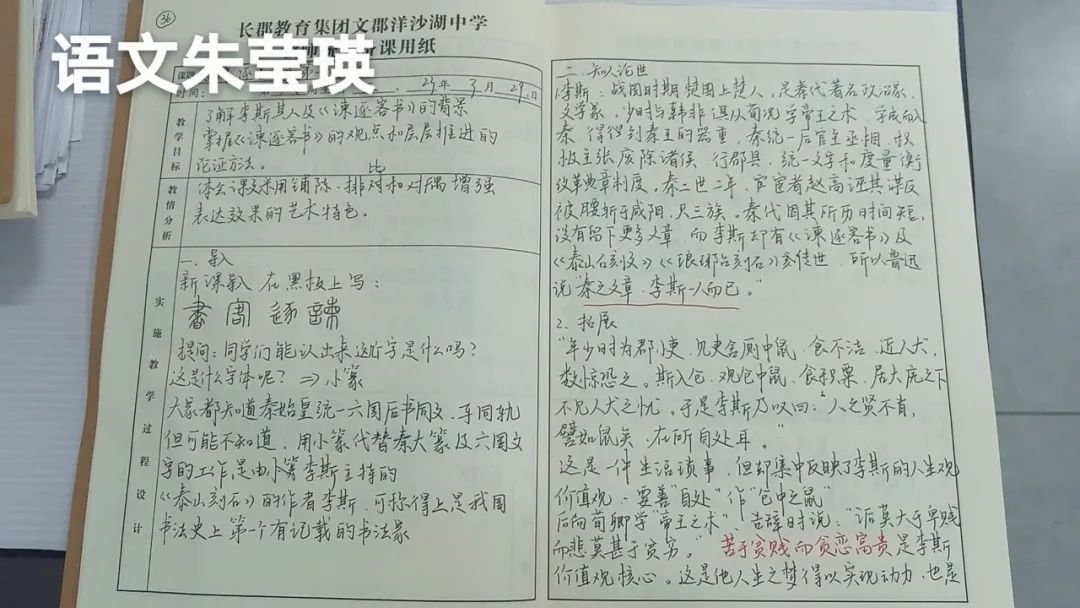 36
长郡教育集团文郡洋沙湖中学
课用纸
语文朱莹瑛
时间：
23年 3月 29日
教学目标
了解李斯其人及《谏逐客书》的背景
掌握《谏逐客书》的观点和层层推进的
论证方法。
教情分析
比
体会课文采用铺陈、排对和对偶增强
表达效果的艺术特色。
实施教学过程设计
一.导入
新课导入 在黑板上写：
書 客 逐 諫
提问：同学们能认出来这个字是什么吗？
这是什么字体呢？⇒小篆
大家都知道秦始皇统一六国后书同文、车同轨
但可能不知道，用小篆代替秦大篆及六国文
字的工作是由李斯主持的
《泰山刻石》的作者李斯，可称得上是我国
书法史上第一个有记载的书法家
二.知人论世
李斯：战国时期楚国上蔡人，是秦代著名政治家，
文学家。少时与韩非俱从荀况学帝王之术，学成而入
秦，得得到秦王的器重，秦统一后官至丞相，积
极主张废除诸侯，行郡县，统一文字和度量衡
改革典章制度。秦二世二年，宦官者赵高诬其谋反
被腰斩于咸阳，灭三族。秦代因其所历时间短，
没有留下更多文章，而李斯却有《谏逐客书》及
《泰山石刻文》《琅琊台刻石》等传世，所以鲁迅
说"秦之文章，李斯一人而已。"
2.拓展
"年少时为郡小吏，见吏舍厕中鼠，食不洁，近人犬，
数惊恐之。斯入仓，观仓中鼠，食积粟，居大庑之下
不见人犬之忧。于是李斯乃叹曰："人之贤不肖，
譬如鼠矣，在所自处耳。"
这是一件生活琐事，但却集中反映了李斯的人生观
价值观，要善"自处"作"仓中之鼠"
后向荀卿学"帝王之术"、告辞时说："诟莫大于卑贱
而悲莫甚于贫穷。"苦于贫贱而贪恋富贵是李斯
价值观核心。这是他人生之梦得以实现动力，也是